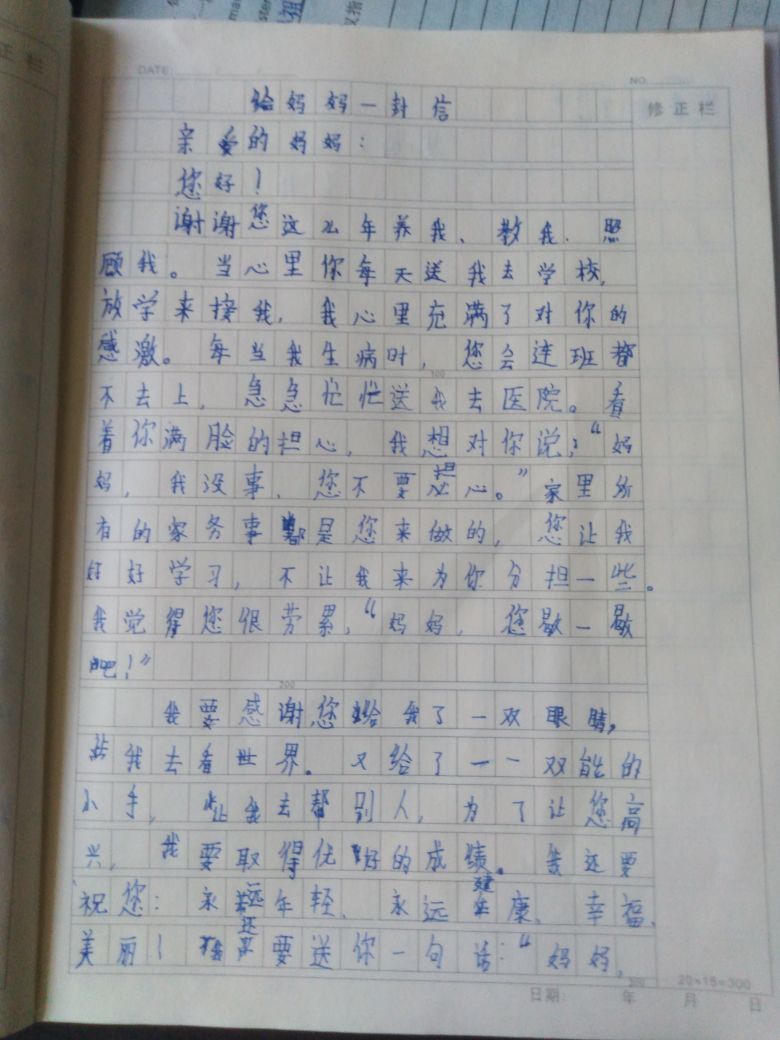 DATE:
NO.
修正栏
给妈妈一封信
亲爱的妈妈：
您好！
谢谢您这么年养我、教我、照
顾我。当心里你每天送我去学校，
放学来接我，我心里充满了对你的
感激。每当我生病时，您会连班都
100
不去上，急急忙忙送我去医院。看
着你满脸的担心，我想对你说：“妈
妈，我没事，您不要担心。”家里所
有的家务事都是您来做的，您让我
好好学习，不让我来为你分担一些。
我觉得您很劳累，“妈妈，您歇一歇
吧！”
200
我要感谢您给我了一双眼睛，
我去看世界。又给了一一双能的
小手，让我去帮别人，为了让您高
兴，我要取得优好的成绩。我还要
祝您：永远年轻、永远健康、幸福、
美丽！还要送你一句话：“妈妈，
300
20×15=300
日期： 年 月 日